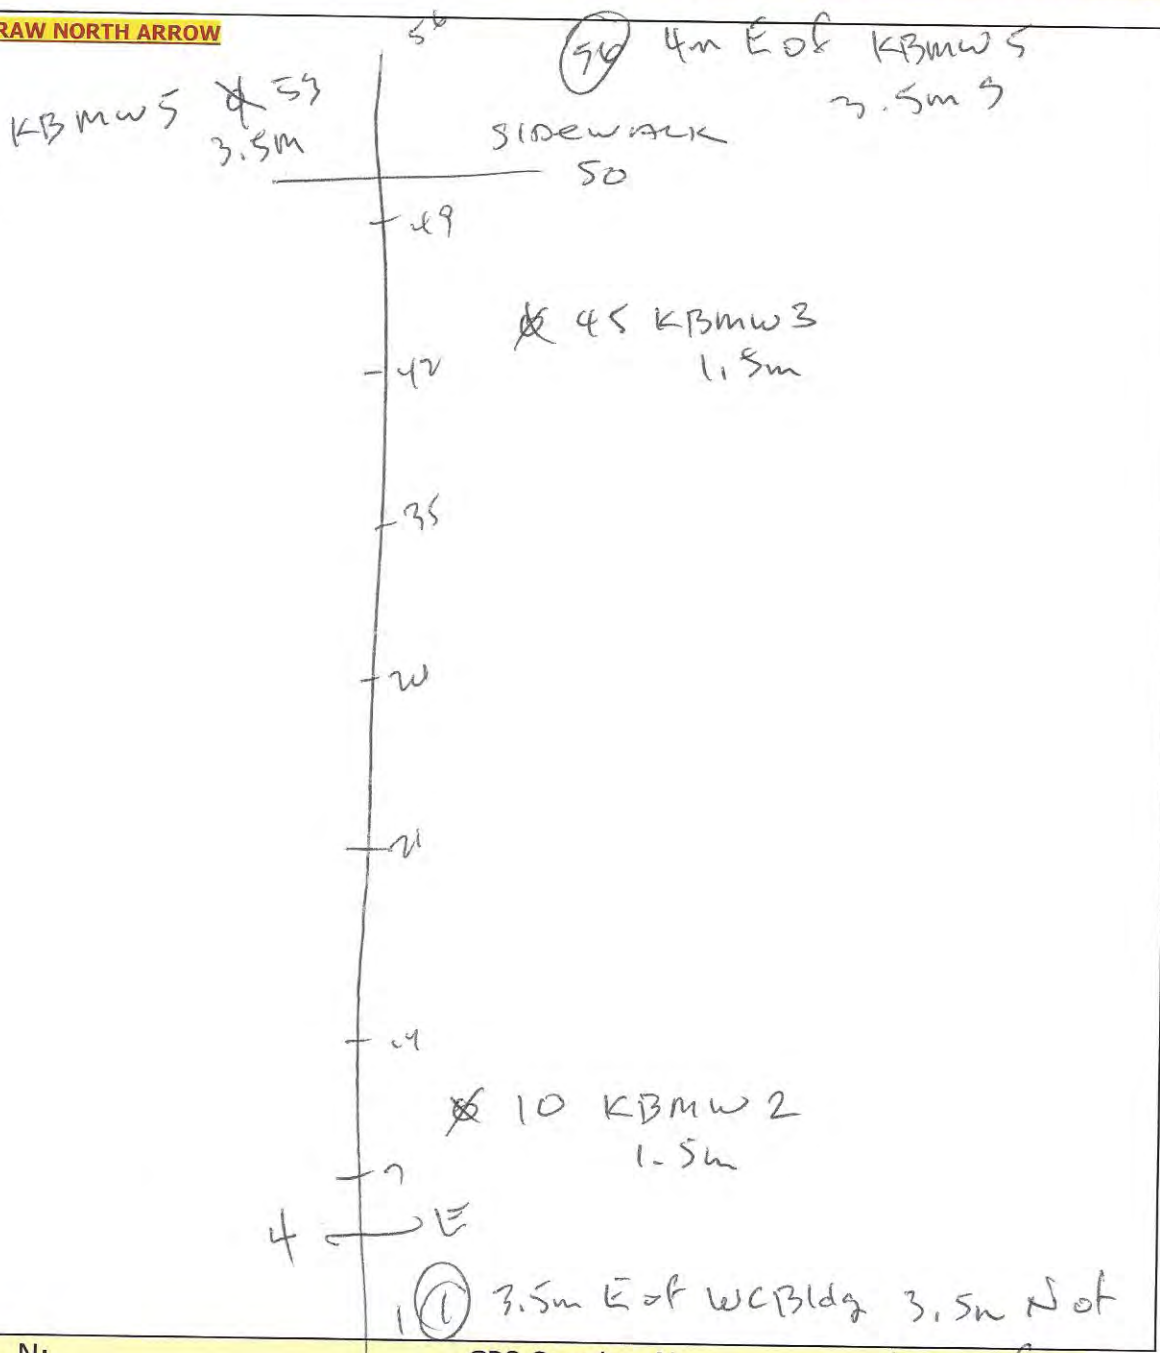 RAW NORTH ARROW
56
56 4m E of KBMW5
3.5m S
KBMW5 53
3.5m
SIDEWALK
50
49
45 KBMW3
1.5m
42
35
28
21
14
10 KBMW2
1.5m
7
4 E
1 1 3.5m E of WCBldg 3.5m N of
N: